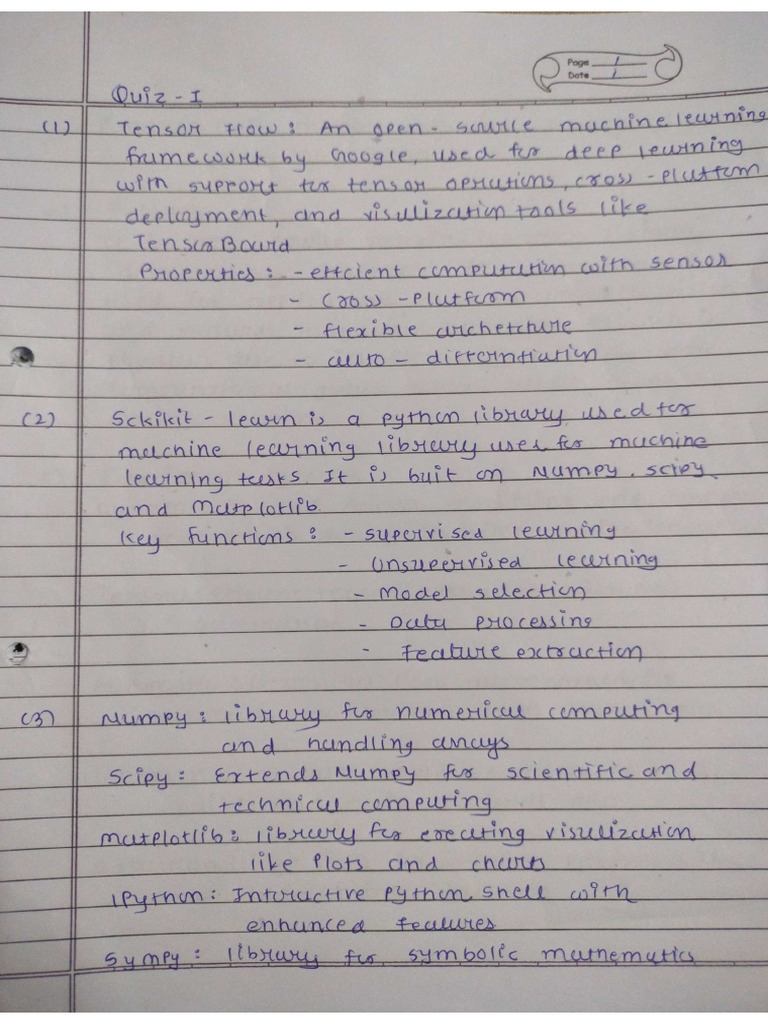 Page 1
Date 1
Quiz - I
(1) Tensor Flow: An open-source machine learning
framework by Google, used for deep learning
with support for tensor operations, cross-platform
deployment, and visulization tools like
TensorBoard
Properties: - effcient computation with sensor
- Cross-Platform
- flexible archetcture
- auto-differntiation
(2) Sckikit-learn is a python library used for
machine learning library uses for machine
learning tasks. It is buit on Numpy, scipy
and Matplotlib
Key Functions: - supervised learning
- Unsupervised learning
- Model selection
- Data processing
- Feature extraction
(3) Numpy: library for numerical computing
and handling arrays
Scipy: Extends Numpy for scientific and
technical computing
Matplotlib: library for creating visulization
like Plots and charts
IPython: Interactive Python shell with
enhanced features
Sympy: library for symbolic mathematics